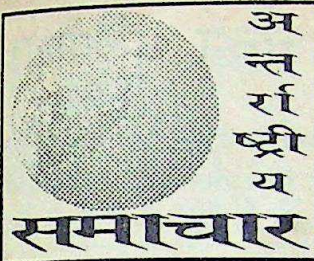 अन्तर्राष्ट्रीय
समाचार